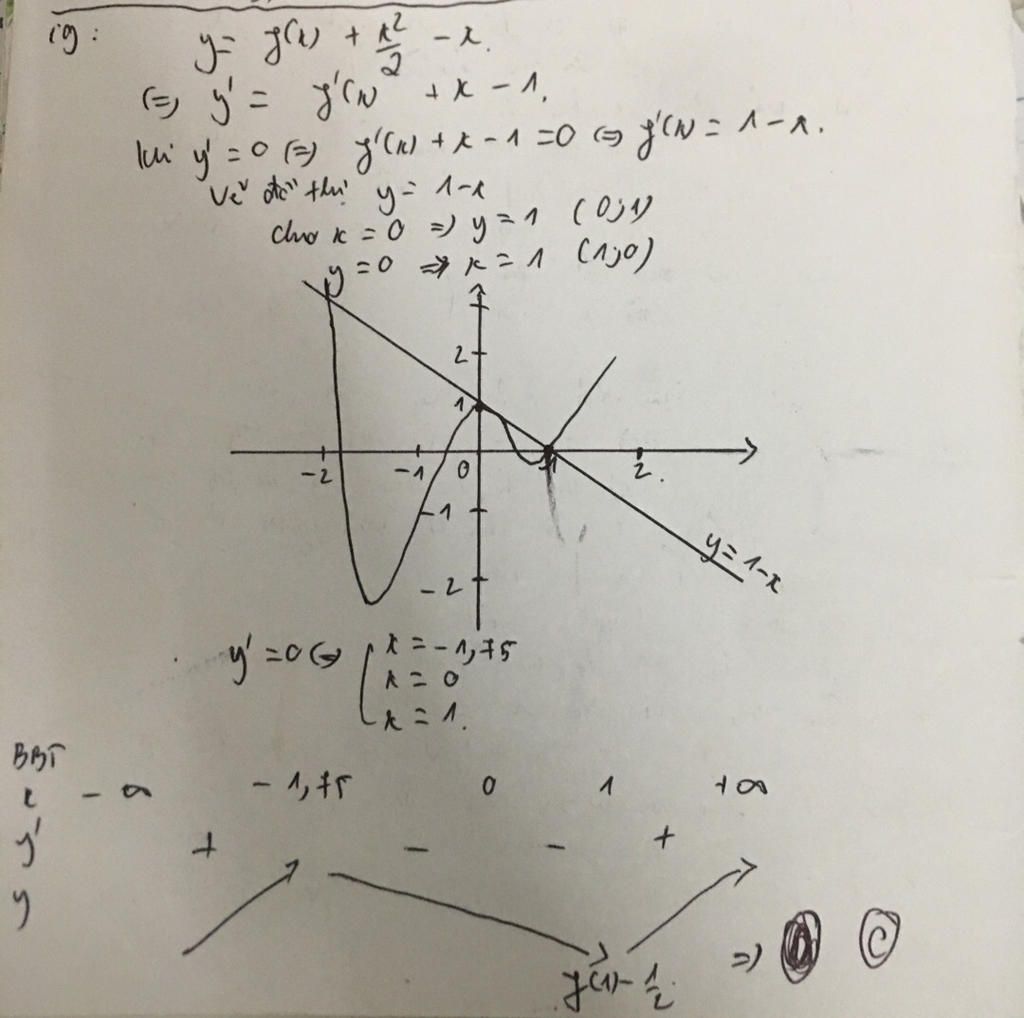 19:
y = f(x) + x²/2 - x.
(=) y' = f'(x) + x - 1.
khi y' = 0 (=) f'(x) + x - 1 = 0 (=) f'(x) = 1 - x.
Vẽ đồ thị y = 1-x
cho x = 0 => y = 1 (0;1)
y = 0 => x = 1 (1;0)
2
1
-2 -1 0 1 2.
-1
-2
y = 1-x
y' = 0 (=) [ x = -1,75
x = 0
x = 1.
BBT
x -∞ -1,75 0 1 +∞
y' + - - +
y
f(1) - 1/2. => C